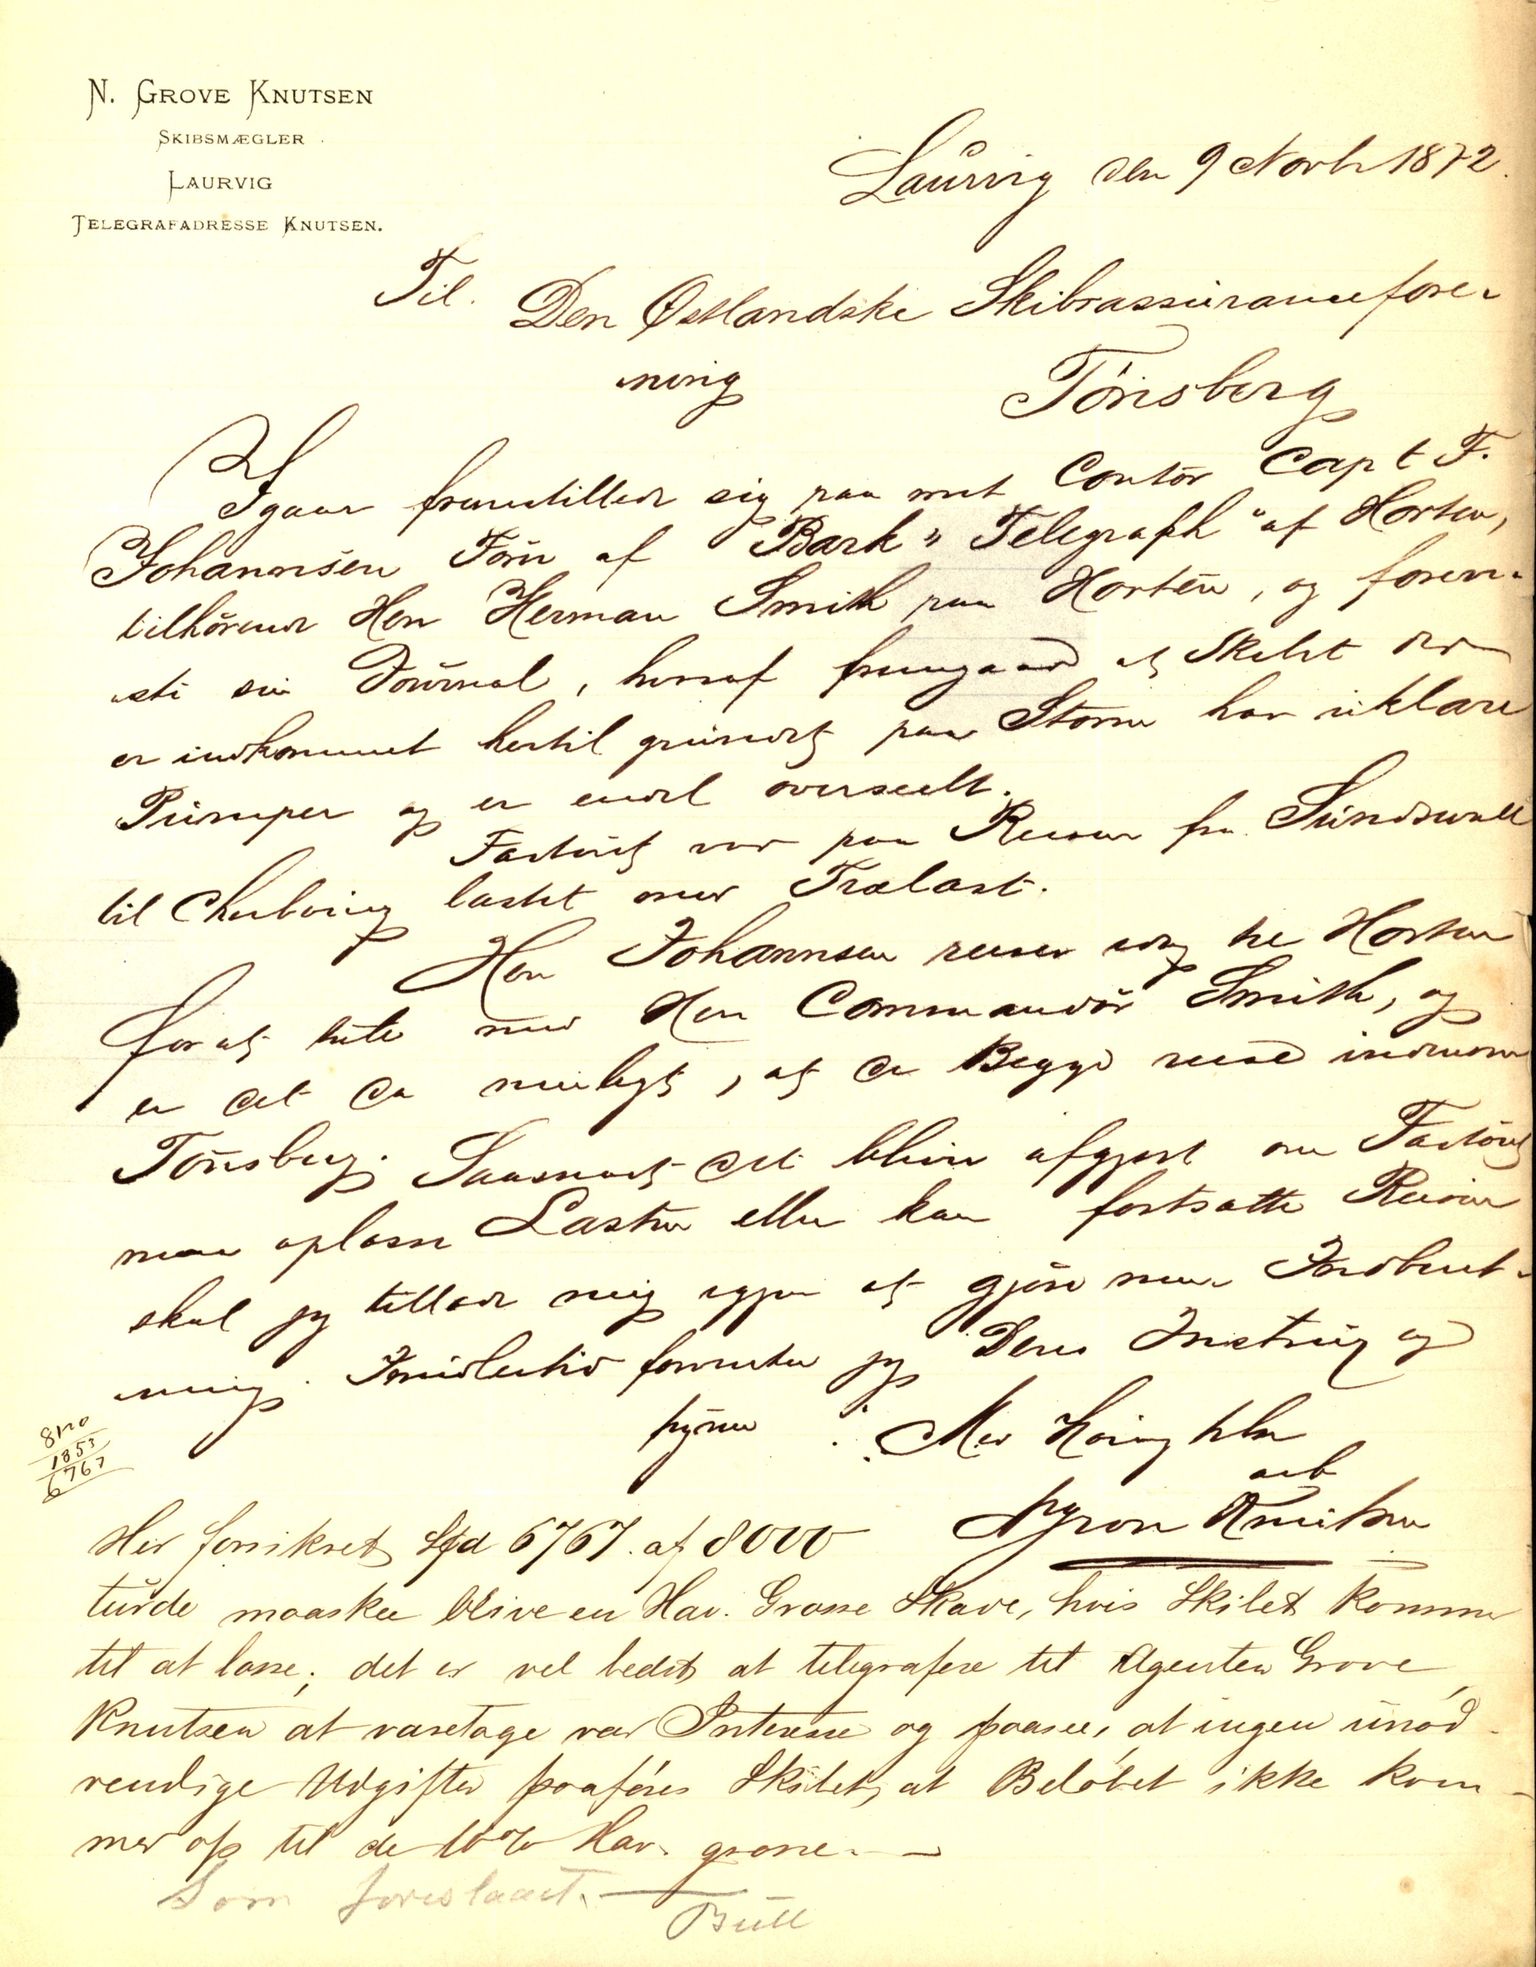 N. GROVE KNUTSEN
SKIBSMÆGLER
LAURVIG
TELEGRAFADRESSE KNUTSEN.
Laurvig den 9 Novbr 1872.
Til. Den Østlandske Skibsassurancefore-
ning
Tönsberg
Igaar fremstillede sig paa mit Contör Capt F.
Johannsen Förer af Bark "Telegraph" af Horten,
tilhörende Herr Herman Smith paa Horten, og forevi-
ste sin Journal, hvoraf fremgaar at Skibet der
er indkommet hertil grundet paa Storm har uklare
Pumper og er endel overseilt.
Fartöiet var paa Reisen fra Sundswall
til Cherbourg lastet med Trælast.
Herr Johannsen reiser idag til Horten
for at tale med Herr Commandör Smith, og
er det da muligt, at de Begge reise indom
Tönsberg. Saasnart det bliver afgjort om Fartöiet
maa oplosse Lasten eller kan fortsætte Reisen
skal jeg tillade mig igjen at gjöre min Indberet-
ning. Imidlertid forventer jeg Deres Instrux og
tegner Med Höiagtelse
arb
Grove Knutsen
8120
1853
6767
Her forsikret Spd 6767. af 8000
turde maaskee blive en Hav. Grosse Skade, hvis Skibet kommer
til at losse; det er vel bedst at telegrafere til Agenten Grove
Knutsen at varetage vor Interesse og paasee, at ingen unød-
vendige Udgifter paaføres Skibet, at Beløbet ikke kom-
mer op til de 10% Hav. grosse.
Som foreslaaet.
Bull